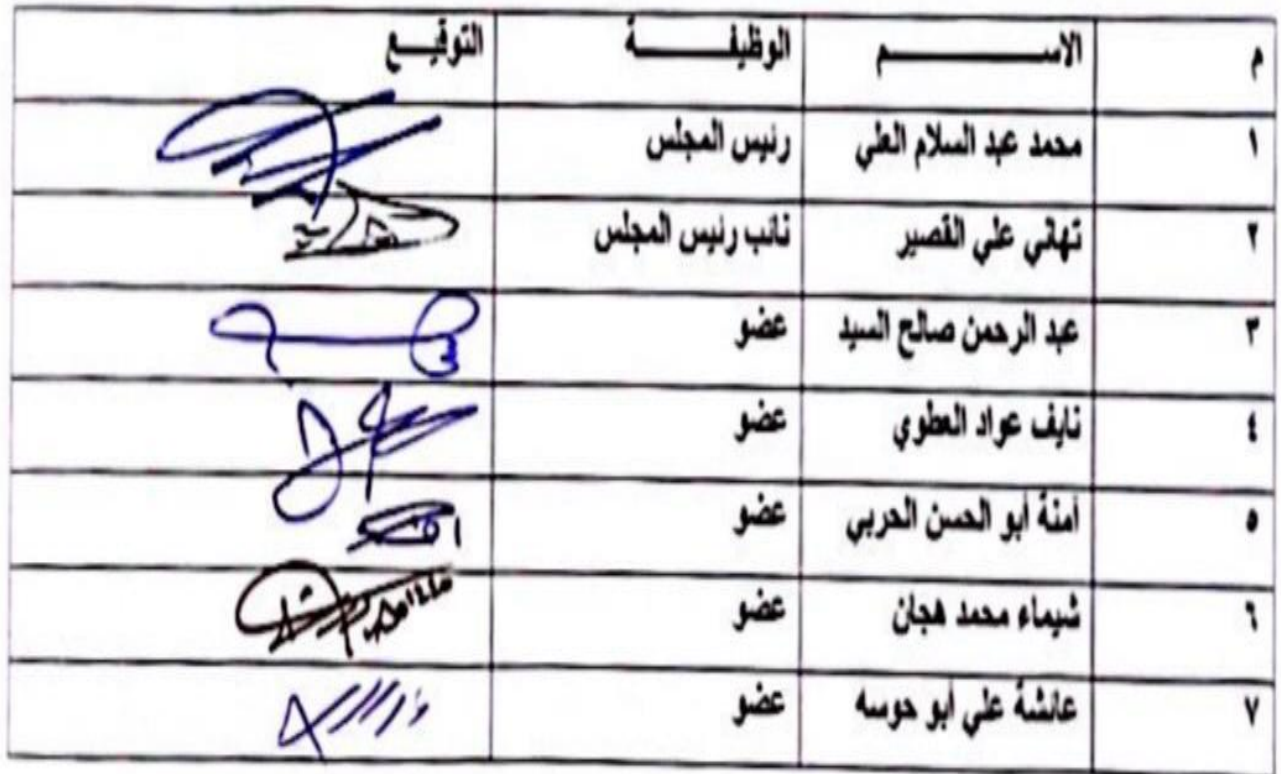 م الاســـــــــم الوظيفــــــة التوقيــع
١ محمد عبد السلام العلي رئيس المجلس
٢ تهاني علي القصير نائب رئيس المجلس
٣ عبد الرحمن صالح السيد عضو
٤ نايف عواد العطوي عضو
٥ أمنة أبو الحسن الحربي عضو
٦ شيماء محمد هجان عضو
٧ عائشة علي أبو حوسه عضو